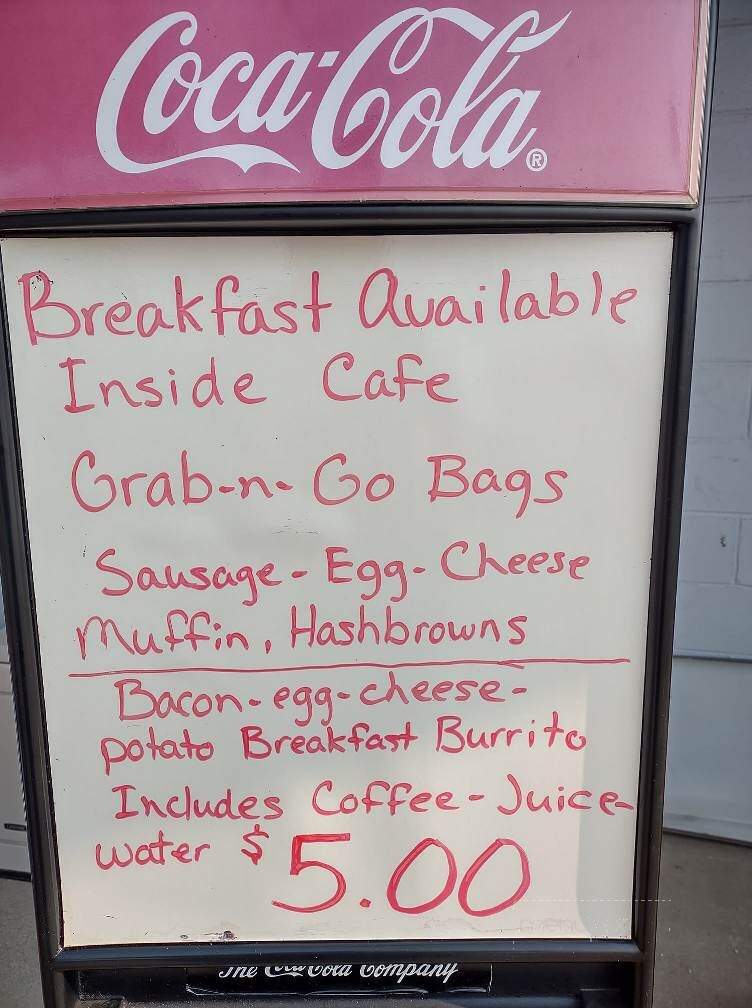 Coca-Cola®
Breakfast Available
Inside Cafe
Grab-n-Go Bags
Sausage-Egg-Cheese
Muffin, Hashbrowns
Bacon-egg-cheese-
potato Breakfast Burrito
Includes Coffee-Juice-
water $5.00
The Coca-Cola Company